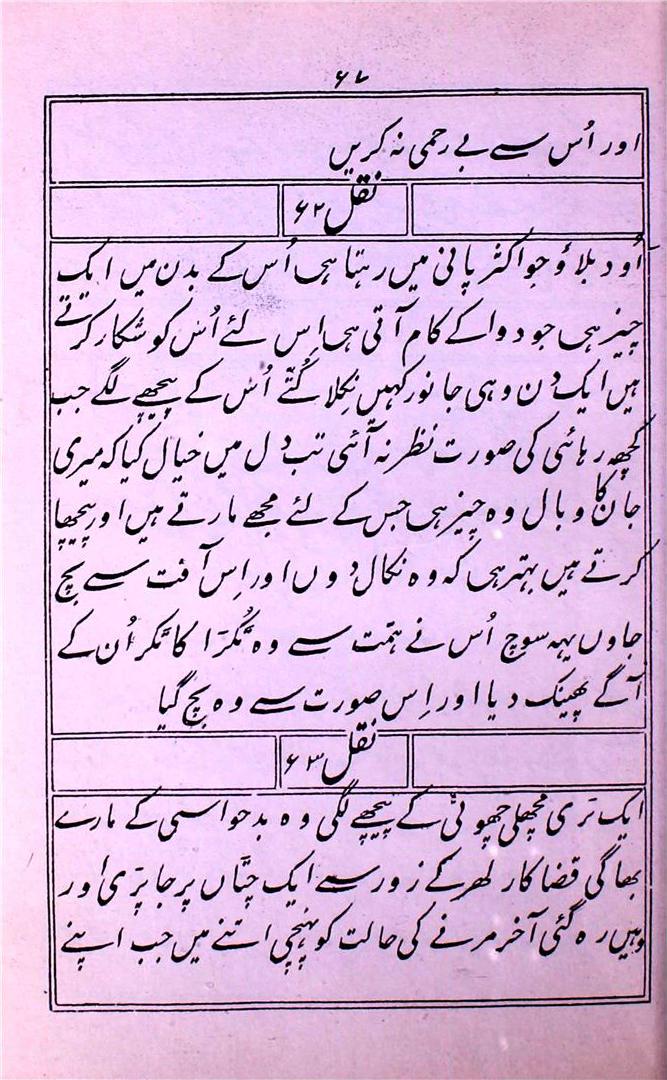 ۶۷
اور اُس سے بے رحمی نہ کریں
نقل ۶۲
اُود بلاؤ جو اکثر پانی میں رہتا ہی اُس کے بدن میں ایک
چیز ہی جو دوا کے کام آتی ہی اِس لئے اُس کو شکار کرتے
ہیں ایک دن وہی جانور کہیں نکلا کُتّے اُس کے پیچھے لگے جب
کچھ رہائی کی صورت نظر نہ آئی تب دل میں خیال کیا کہ میری
جان کا وبال وہ چیز ہی جس کے لئے مجھے مارتے ہیں اور پیچھا
کرتے ہیں بہتر ہی کہ وہ نکال دوں اور اِس آفت سے بچ
جاوں یہہ سوچ اُس نے ہمّت سے وہ ٹُکڑا کاٹکر اُن کے
آگے پھینک دیا اور اِس صورت سے وہ بچ گیا
نقل ۶۳
ایک بڑی مچھلی چھوٹی کے پیچھے لگی وہ بدحواسی کے مارے
بھاگی قضا کار لھر کے زور سے ایک چٹّان پر جا پڑی اور
وہیں رہ گئی آخر مرنے کی حالت کو پہنچی اتنے میں جب اپنے